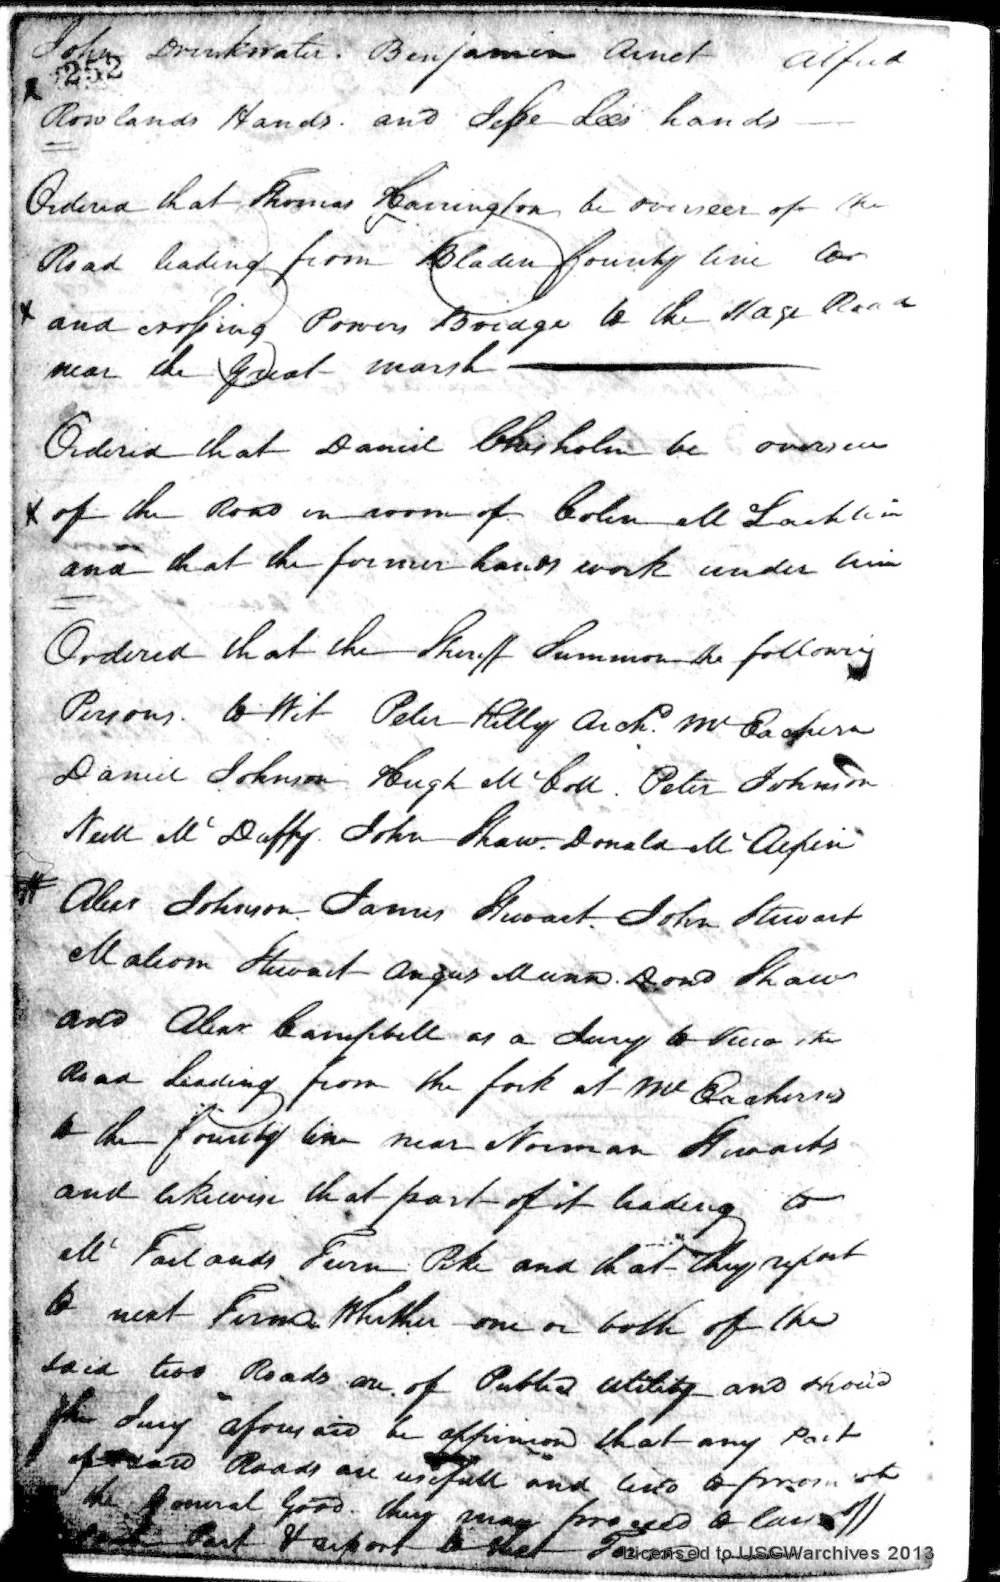 John Drinkwater. Benjamin Arnet Alfred
252
Rowlands Hands. and Jesse Lee's hands
Ordered that Thomas Harrington be overseer of the
Road leading from Bladen County line to
and crossing Powers Bridge to the Stage Road
near the Great marsh
Ordered that Daniel Chisholm be overseer
of the Road in room of Colin McLachlin
and that the former hands work under him
Ordered that the Sheriff Summon the following
Persons. to Wit Peter Kelly Archd. McEachern
Daniel Johnson Hugh McColl. Peter Johnson
Neill McDuffy. John Shaw. Donald McAlpin
Alexr Johnson. James Stewart. John Stewart
Malcom Stewart Angus Munn. Dond Shaw
and Alexr Campbell as a Jury to View the
Road Leading from the fork at McEacherns
to the County line near Norman Stewarts
and likewise that part of it leading to
Mc Farlands Turn Pike and that they report
to next Term Whither one or both of the
said two Roads are of Public utility and should
the Jury aforesaid be oppinion that any Part
of said Roads are usefull and tend to promote
the General Good. they may proceed to lay off
Part & report to next
Licensed to USGWarchives 2013